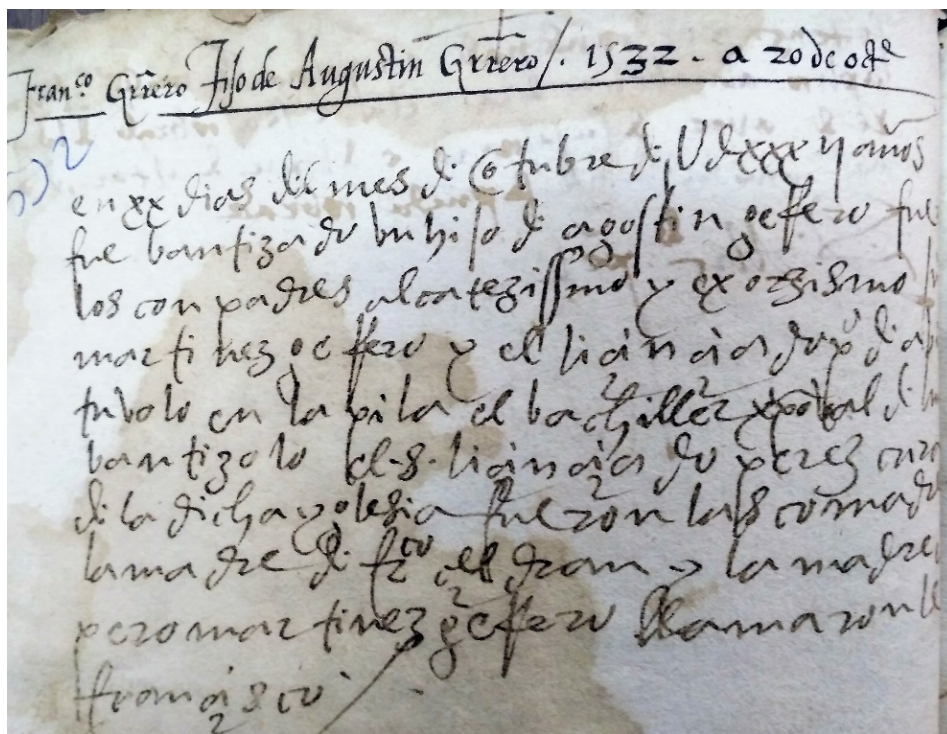 Fran.co Grrero Fijo de Augustin Grrero /. 1532. a 20 de octe
en xx dias del mes di Otubre di U d xxx ij años
fue bautizado un hijo di agostin gerrero fue
los conpadres al catezissmo y exorzismo
martinez gerrero y el licinciado po di
tubolo en la pila el bachiller xpoval di
bautizolo el s. licinciado perez cura
di la dicha yglesia fueron las comad
la madre di frco y la madre
pero martinez gerrero llamaron
francisco